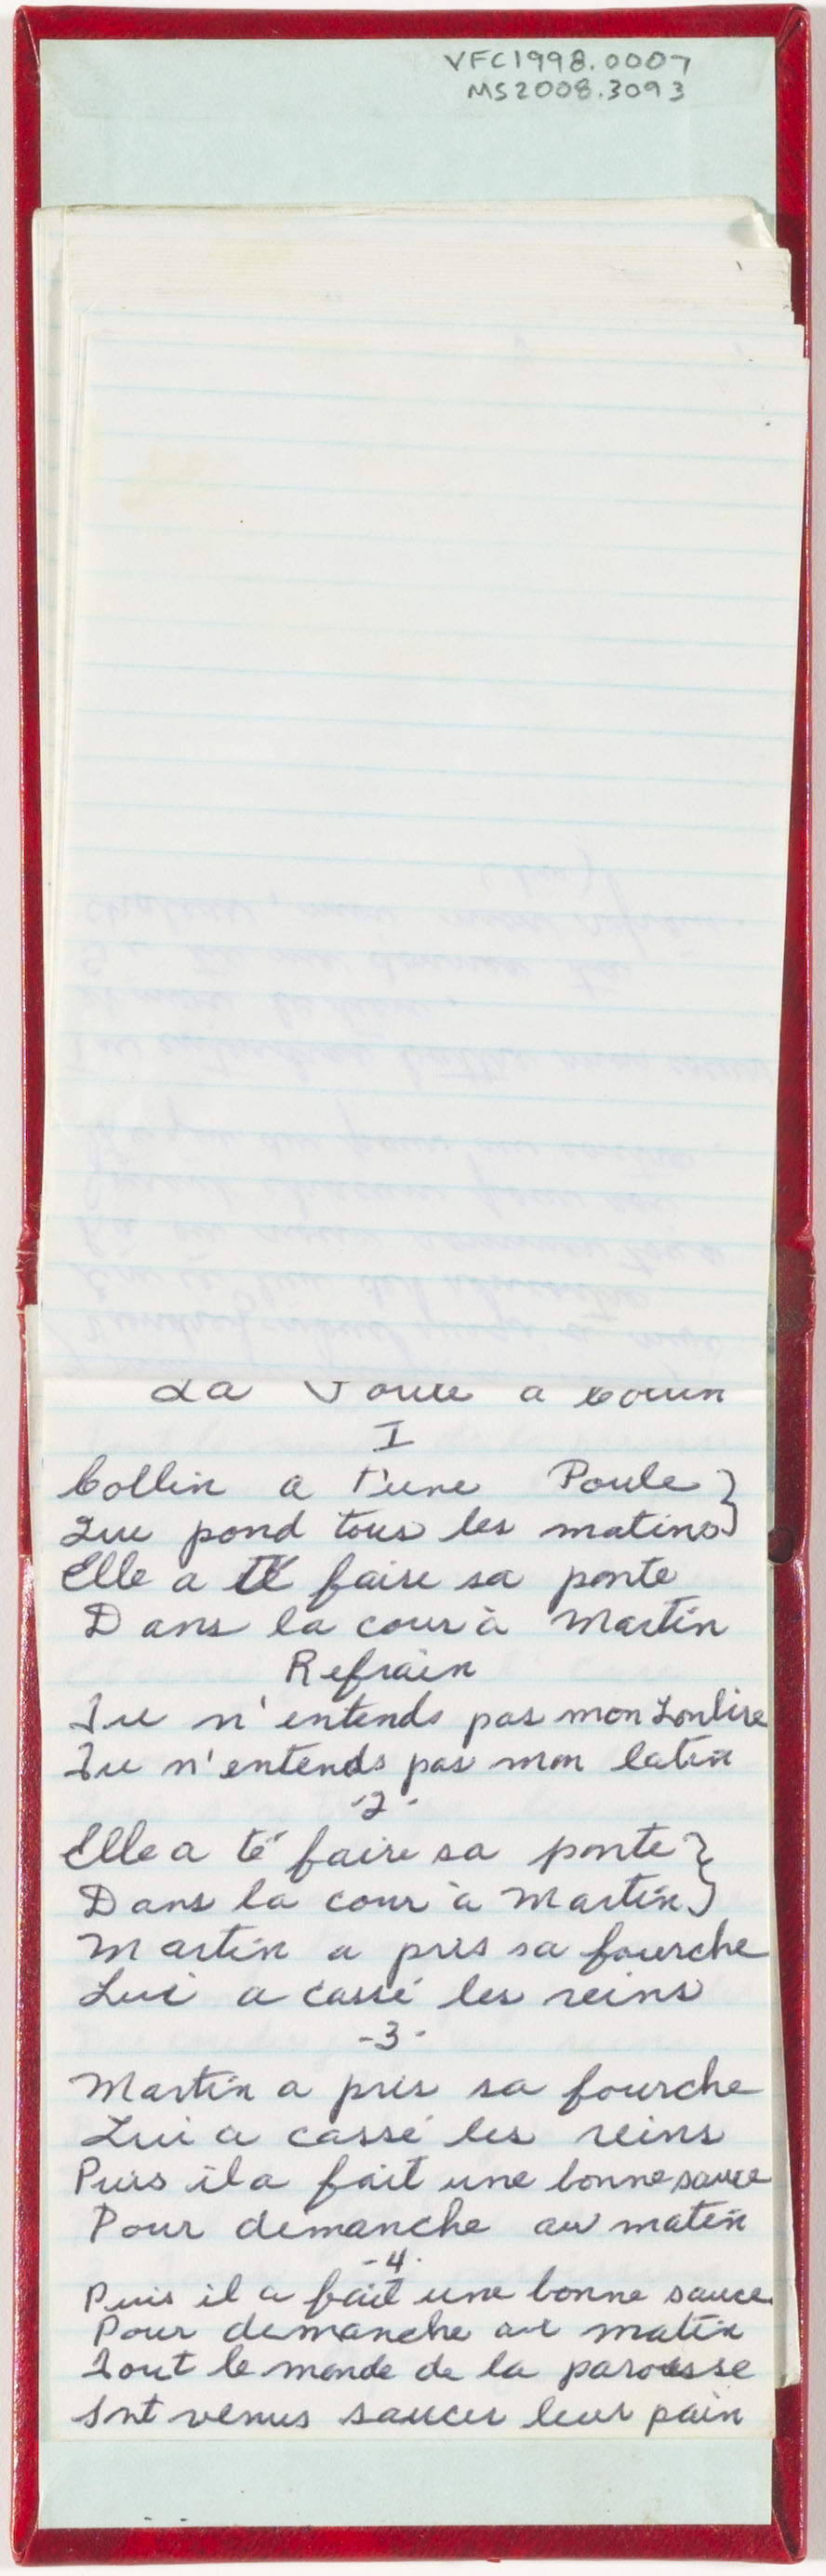 VFC1998.0007
MS2008.3093
La Poule a Colin
I
Collin a t'une Poule }
Qui pond tous les matins }
Elle a té faire sa ponte
Dans la cour à Martin
Refrain
Tu n'entends pas mon
Tu n'entends pas mon latin
-2-
Elle a té faire sa ponte }
Dans la cour à Martin }
Martin a pris sa fourche
Lui a cassé les reins
-3-
Martin a pris sa fourche
Lui a cassé les reins
Puis il a fait une bonne sauce
Pour demanche au matin
-4-
Puis il a fait une bonne sauce
Pour demanche au matin
Tout le monde de la paroisse
Snt venus saucer leur pain